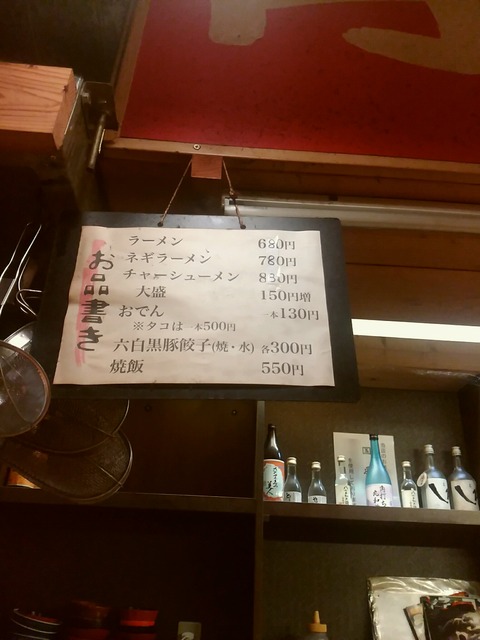 お品書き
ラーメン 680円
ネギラーメン 780円
チャーシューメン 830円
大盛 150円増
おでん 一本130円
※タコは一本500円
六白黒豚餃子(焼・水) 各300円
焼飯 550円